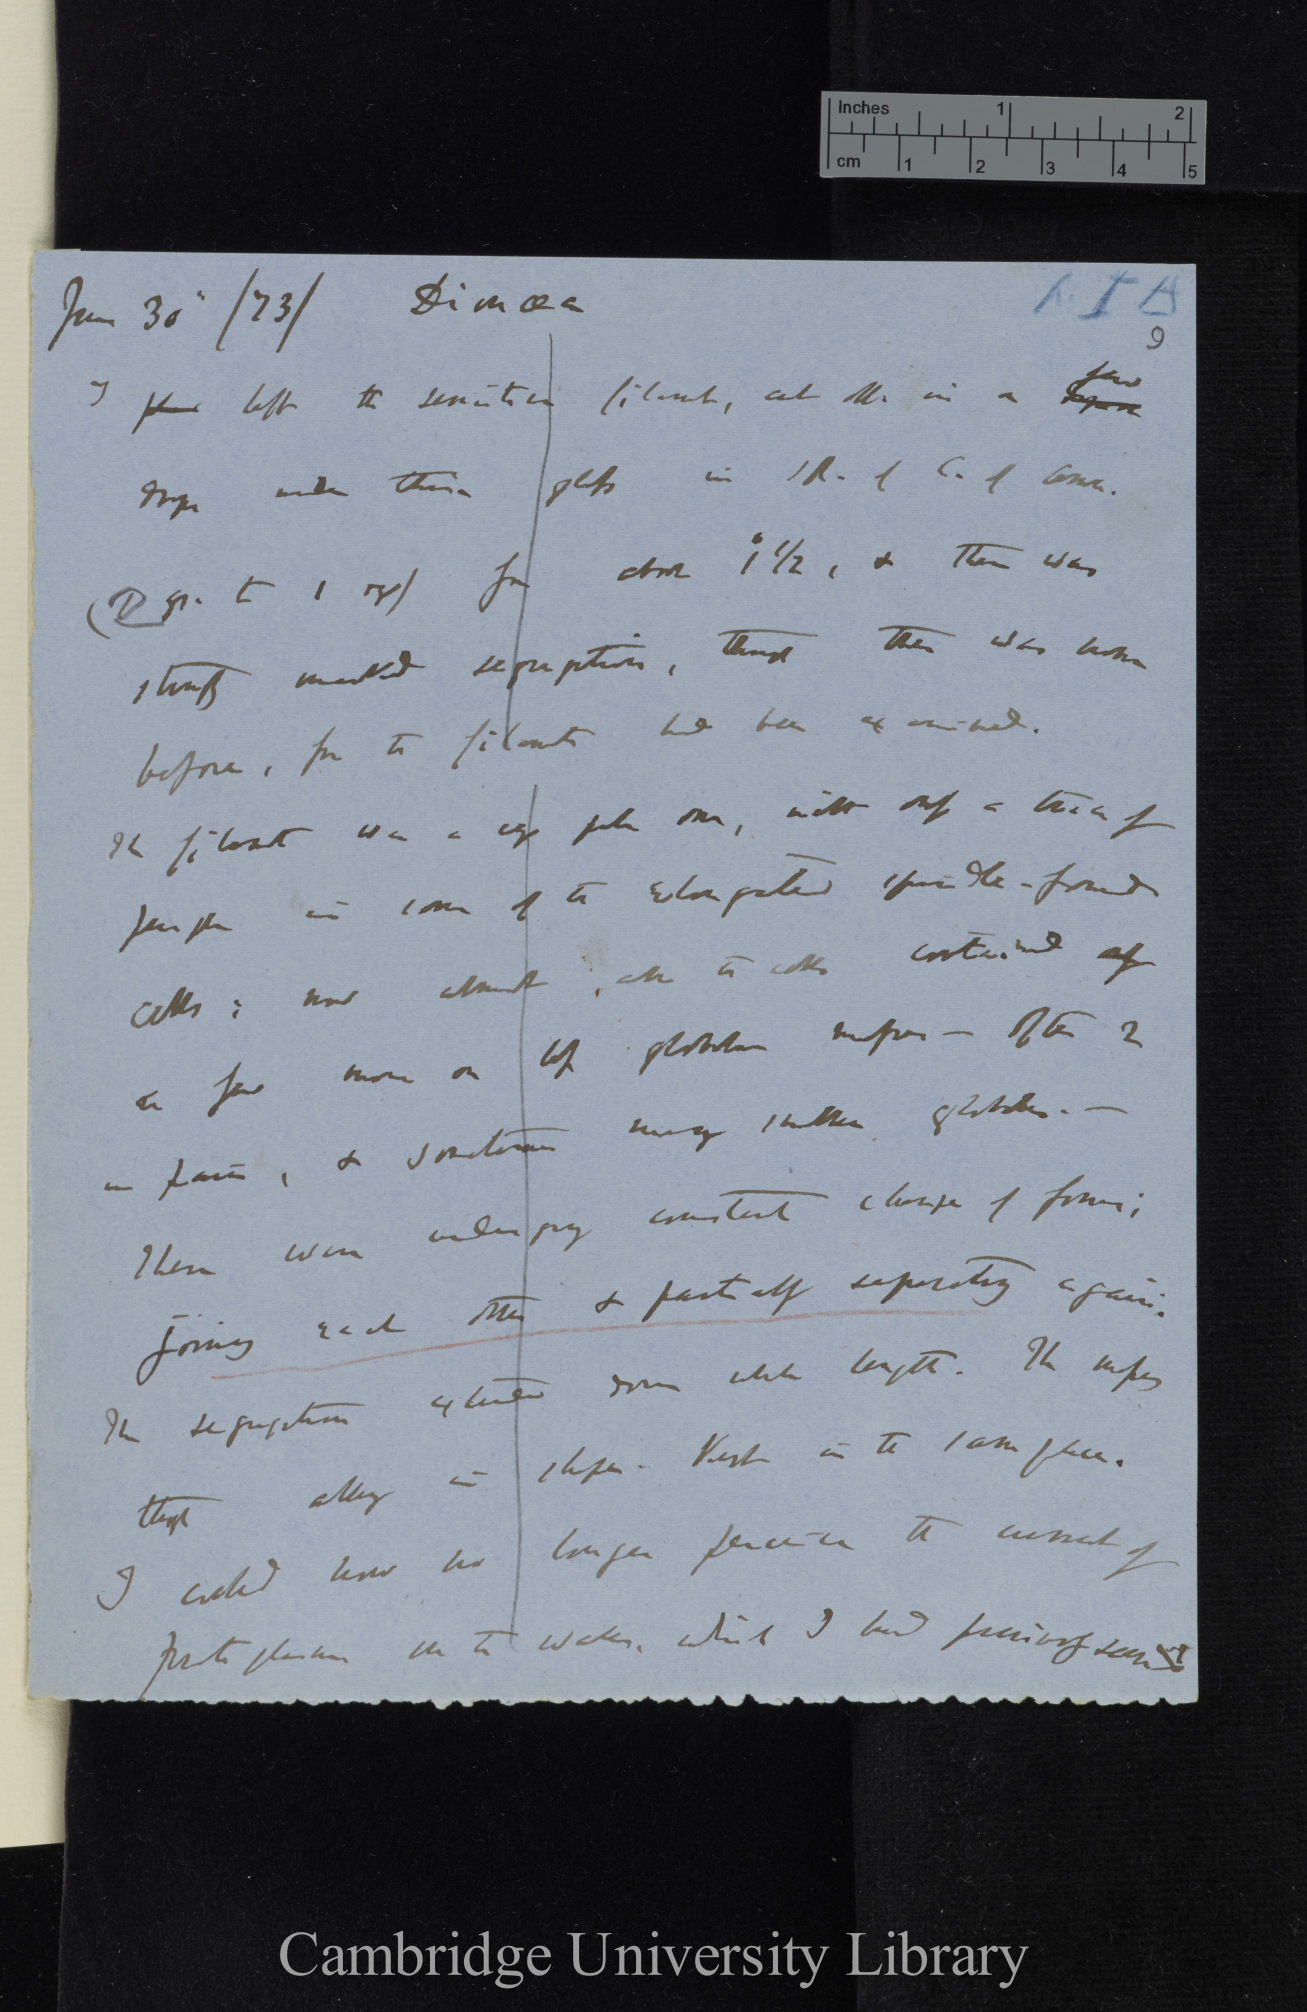 Inches 1 2
cm 1 2 3 4 5
June 30 /73/ Dionæa
9
I left the sensitive filament, cut off in a few
drops under thin glass in of C. of Ammon.
gr. to 1 oz) for about 1° 1/2, & there was
strongly marked segregation, though there was none
before, for the filament had been examined.
The filament was a very pale one, with only a trace of
purple in some of the elongated spindle-formed
cells; now almost all the cells contained
a few more or less globular masses — often 2
a pair, & sometimes many smaller globules. —
These were undergoing constant change of form;
joining each other & partially separating again.
The segregation extended down whole length. The masses
though altering in shape. Kept in the same place.
I could now no longer perceive the current of
protoplasm on the walls, which I had previously seen
Cambridge University Library